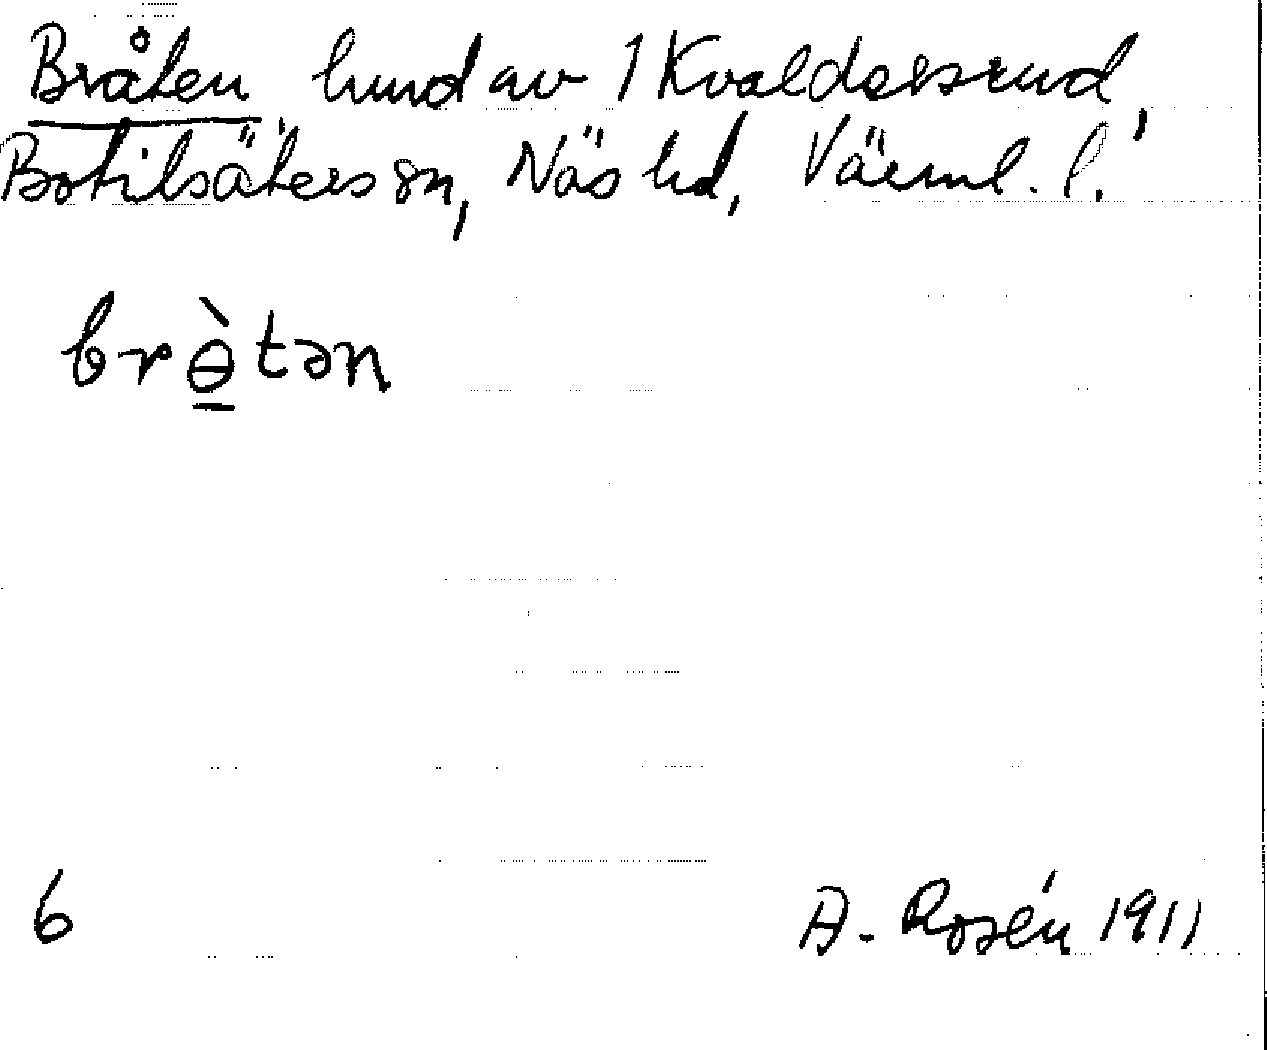 Bråten hmd av 1 Kvaldersrud,
Botilsäters sn, Näs hd, Värml. l.
brɵ̱̀tən
6
A. Rosén 1911